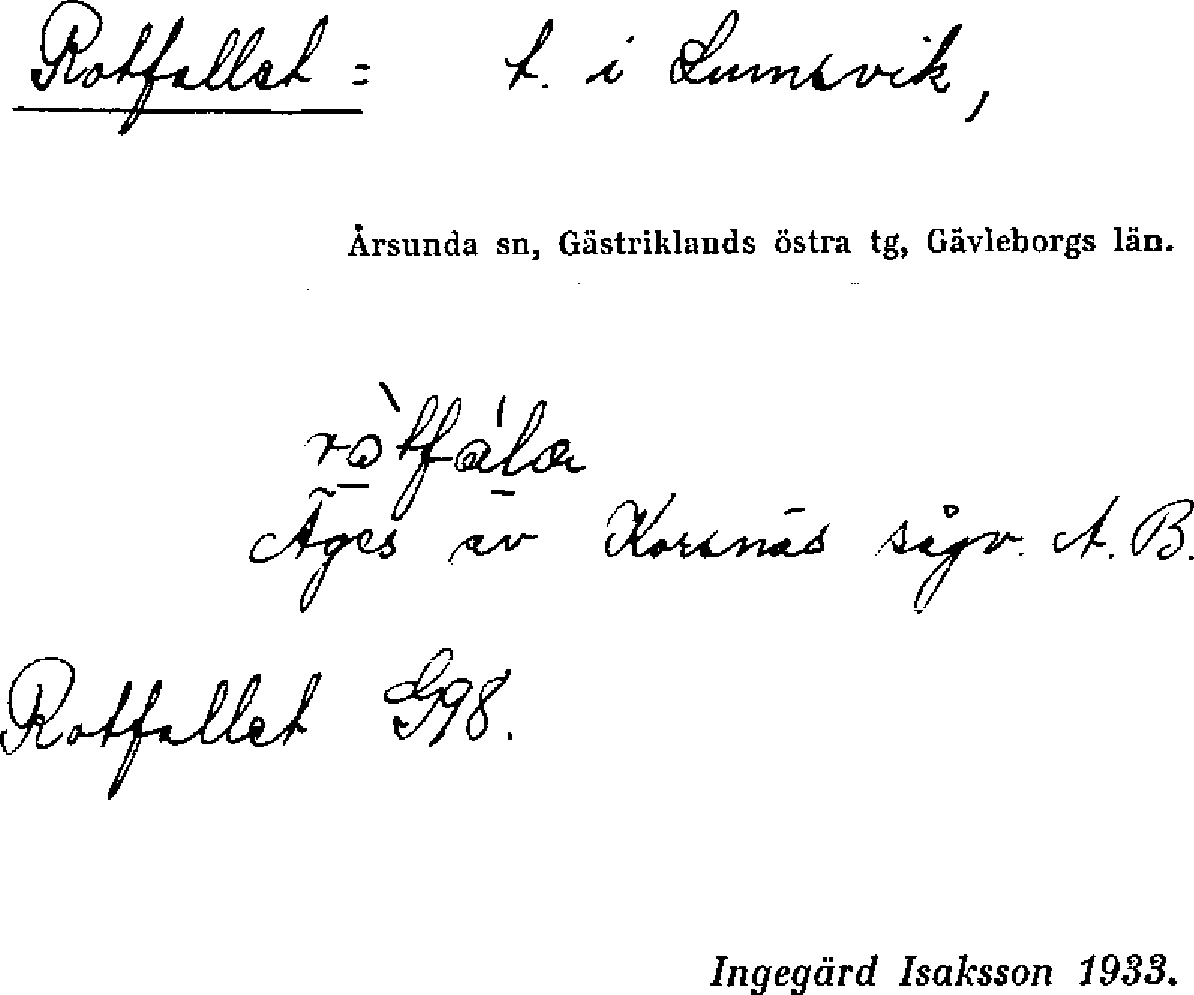 Rotfallet = t. i Lumsvik,
Årsunda sn, Gästriklands östra tg, Gävleborgs län.
Äges av Korsnäs sågv. A. B.
Rotfallet G98.
Ingegärd Isaksson 1933.